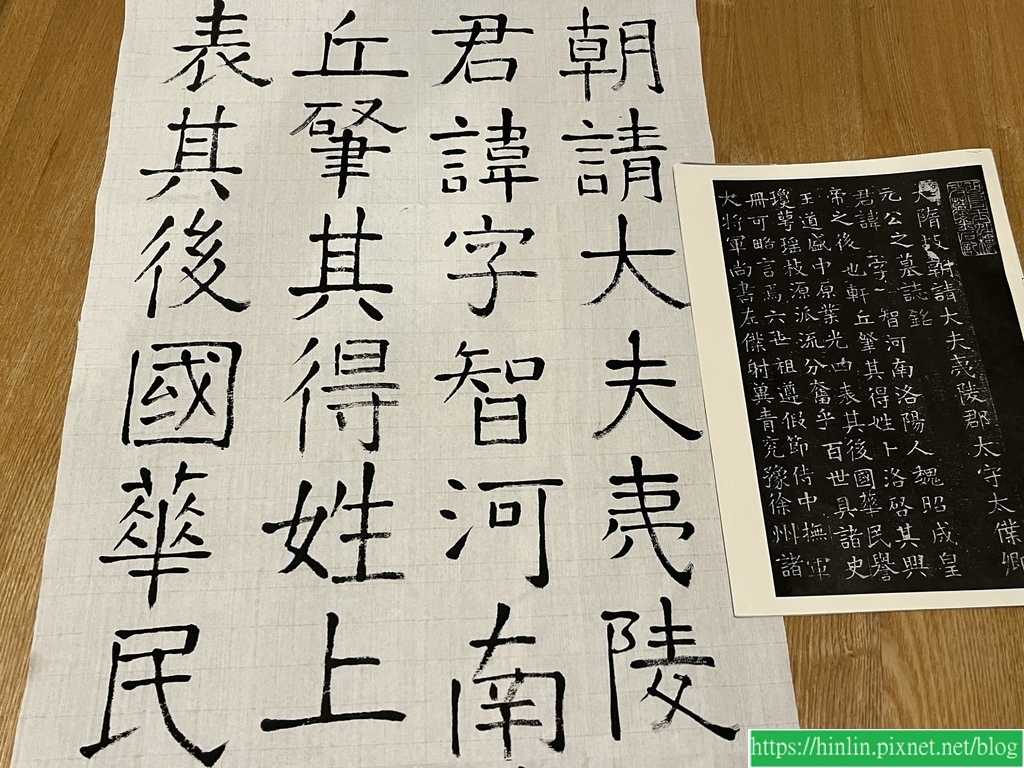 朝請大夫夷陵
君諱字智河南
丘肇其得姓上
表其後國華民
大隋故朝請大夫夷陵郡太守太僕卿
元公之墓誌銘
君諱字智河南洛陽人魏昭成皇
帝之後也軒丘肇其得姓卜洛啓其興
王道盛中原業光四表其後國華民譽
瓊萼瑤枝源派流分乎百世具諸史
冊可略言焉六世祖遵假節侍中撫軍
大將軍尚書左僕射冀青兗豫徐州諸
https://hinlin.pixnet.net/blog